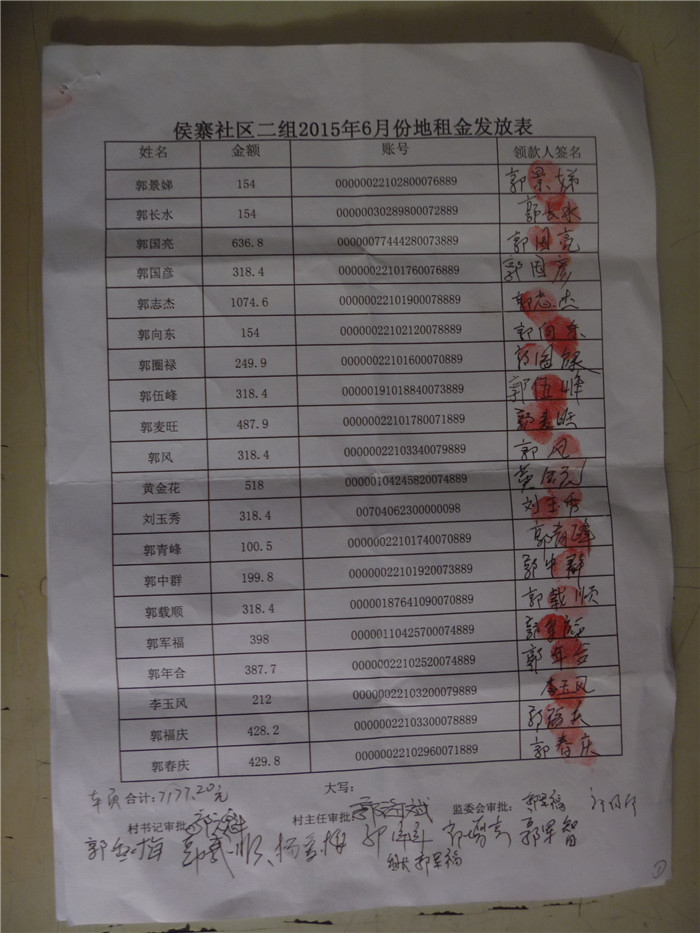 侯寨社区二组2015年6月份地租金发放表
姓名 金额 账号 领款人签名
郭景娣 154 00000022102800076889 郭景娣
郭长水 154 00000030289800072889 郭长水
郭国亮 636.8 00000077444280073889 郭国亮
郭国彦 318.4 00000022101760076889 郭国彦
郭志杰 1074.6 00000022101900078889 郭志杰
郭向东 154 00000022102120078889 郭向东
郭圈禄 249.9 00000022101600070889 郭圈禄
郭伍峰 318.4 00000191018840073889 郭伍峰
郭麦旺 487.9 00000022101780071889 郭麦旺
郭风 318.4 00000022103340079889 郭风
黄金花 518 00000104245820074889 黄金花
刘玉秀 318.4 00704062300000098 刘玉秀
郭青峰 100.5 00000022101740070889 郭青峰
郭中群 199.8 00000022101920073889 郭中群
郭载顺 318.4 00000187641090070889 郭载顺
郭军福 398 00000110425700074889 郭军福
郭年合 387.7 00000022102520074889 郭年合
李玉风 212 00000022103200079889 李玉风
郭福庆 428.2 00000022103300078889 郭福庆
郭春庆 429.8 00000022102960071889 郭春庆
合计:7177.20元 大写:
村书记审批: 村主任审批: 监委会审批: 郭军福
组长郭军福